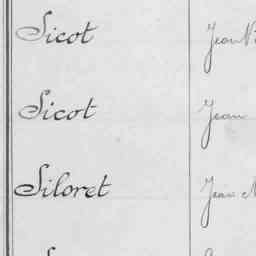 Sicot Jean Vi
Sicot Jean
Siloret Jean M